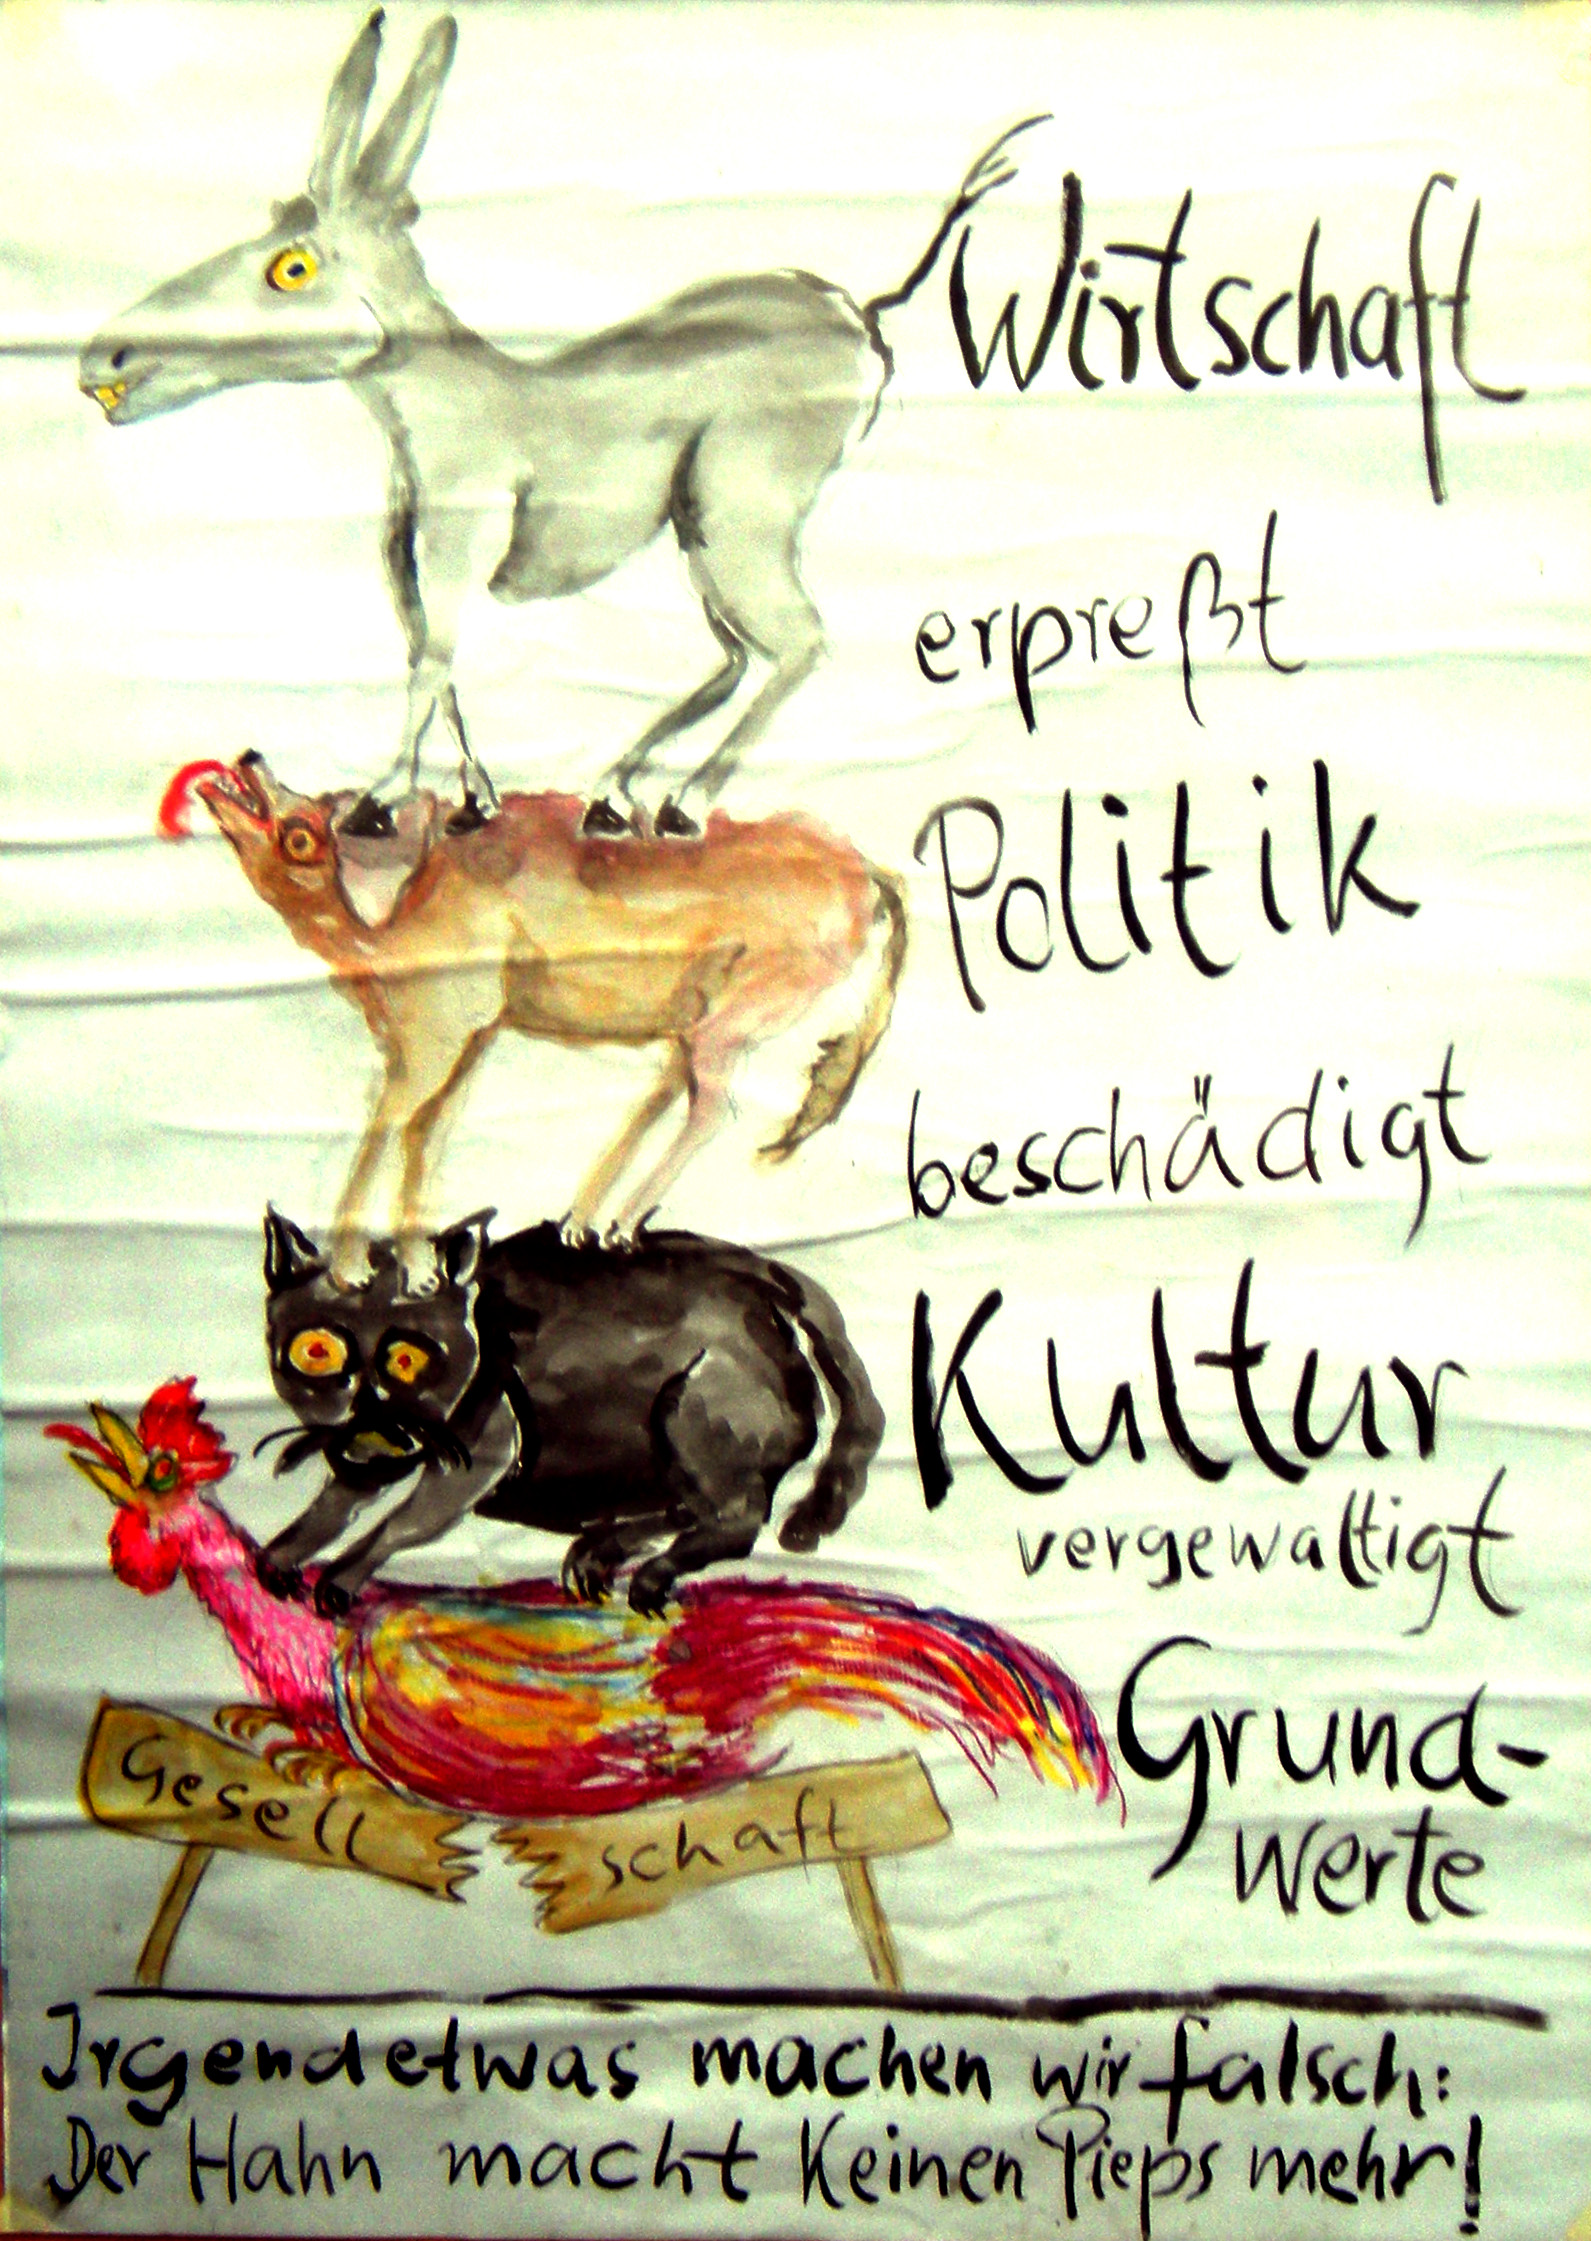 Wirtschaft
erpreßt
Politik
beschädigt
Kultur
vergewaltigt
Grund-
werte
Gesell schaft
Irgendetwas machen wir falsch:
Der Hahn macht keinen Pieps mehr!